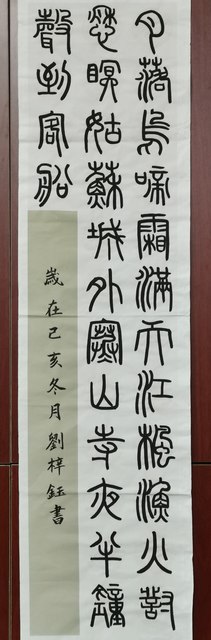 月落烏啼霜滿天江楓漁火對
愁眠姑蘇城外寒山寺夜半鐘
聲到客船
歲在己亥冬月劉梓鈺書